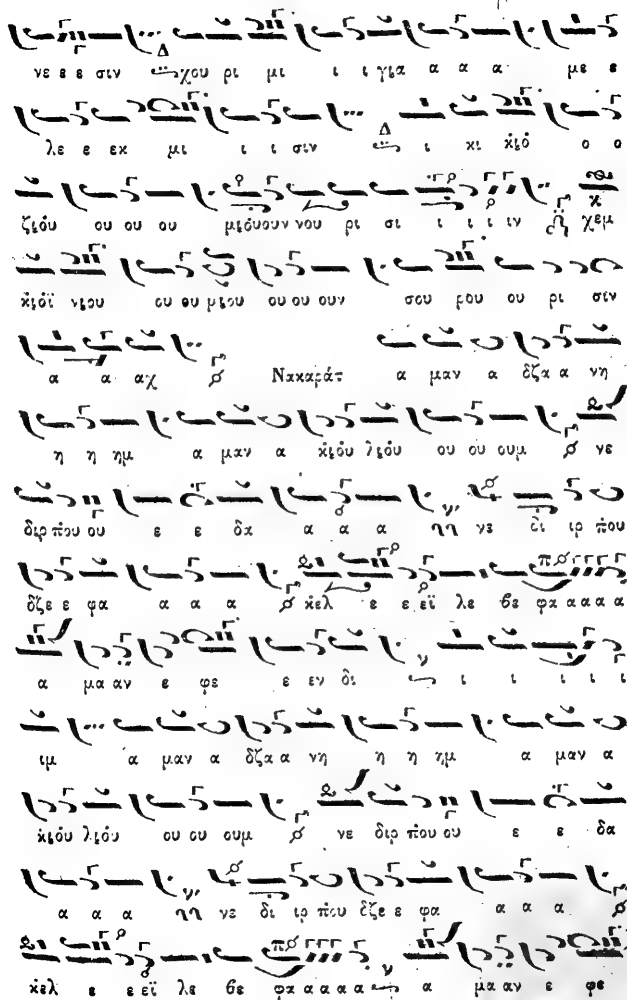 νε ε ε σιν χου ρι μι ι ι για α α α με ε
λε ε εκ μι ι ι σιν ι κι κιο ο ο
ζιου ου ου ου μιουουν νου ρι σι ι ι ι ιν χεμ
κιοϊ νιου ου ου μιου ου ου ουν σου ρου ου ρι σιν
α α αχ Νακαράτ α μαν α δζα α νη
η η ημ α μαν α κιου λιου ου ου ουμ νε
διρ που ου ε ε δα α α α νε δι ιρ που
δζε ε φα α α α κελ ε ε εϊ λε βε φα α α α α
α μα αν ε φε ε εν δι ι ι ι ι ι
ιμ α μαν α δζα α νη η η ημ α μαν α
κιου λιου ου ου ουμ νε διρ που ου ε ε δα
α α α νε δι ιρ που δζε ε φα α α α
κελ ε ε εϊ λε βε φα α α α α α μα αν ε φε